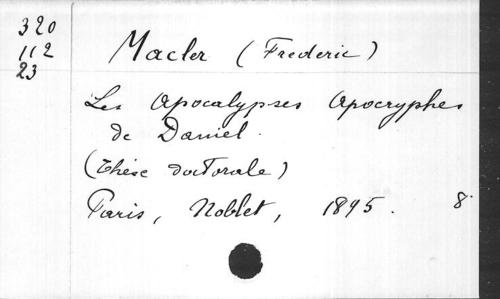 320
112
23
Macler (Frederic)
Les Apocalypses Apocryphes
de Daniel.
(Thèse doctorale)
Paris, Noblet, 1895. 8°